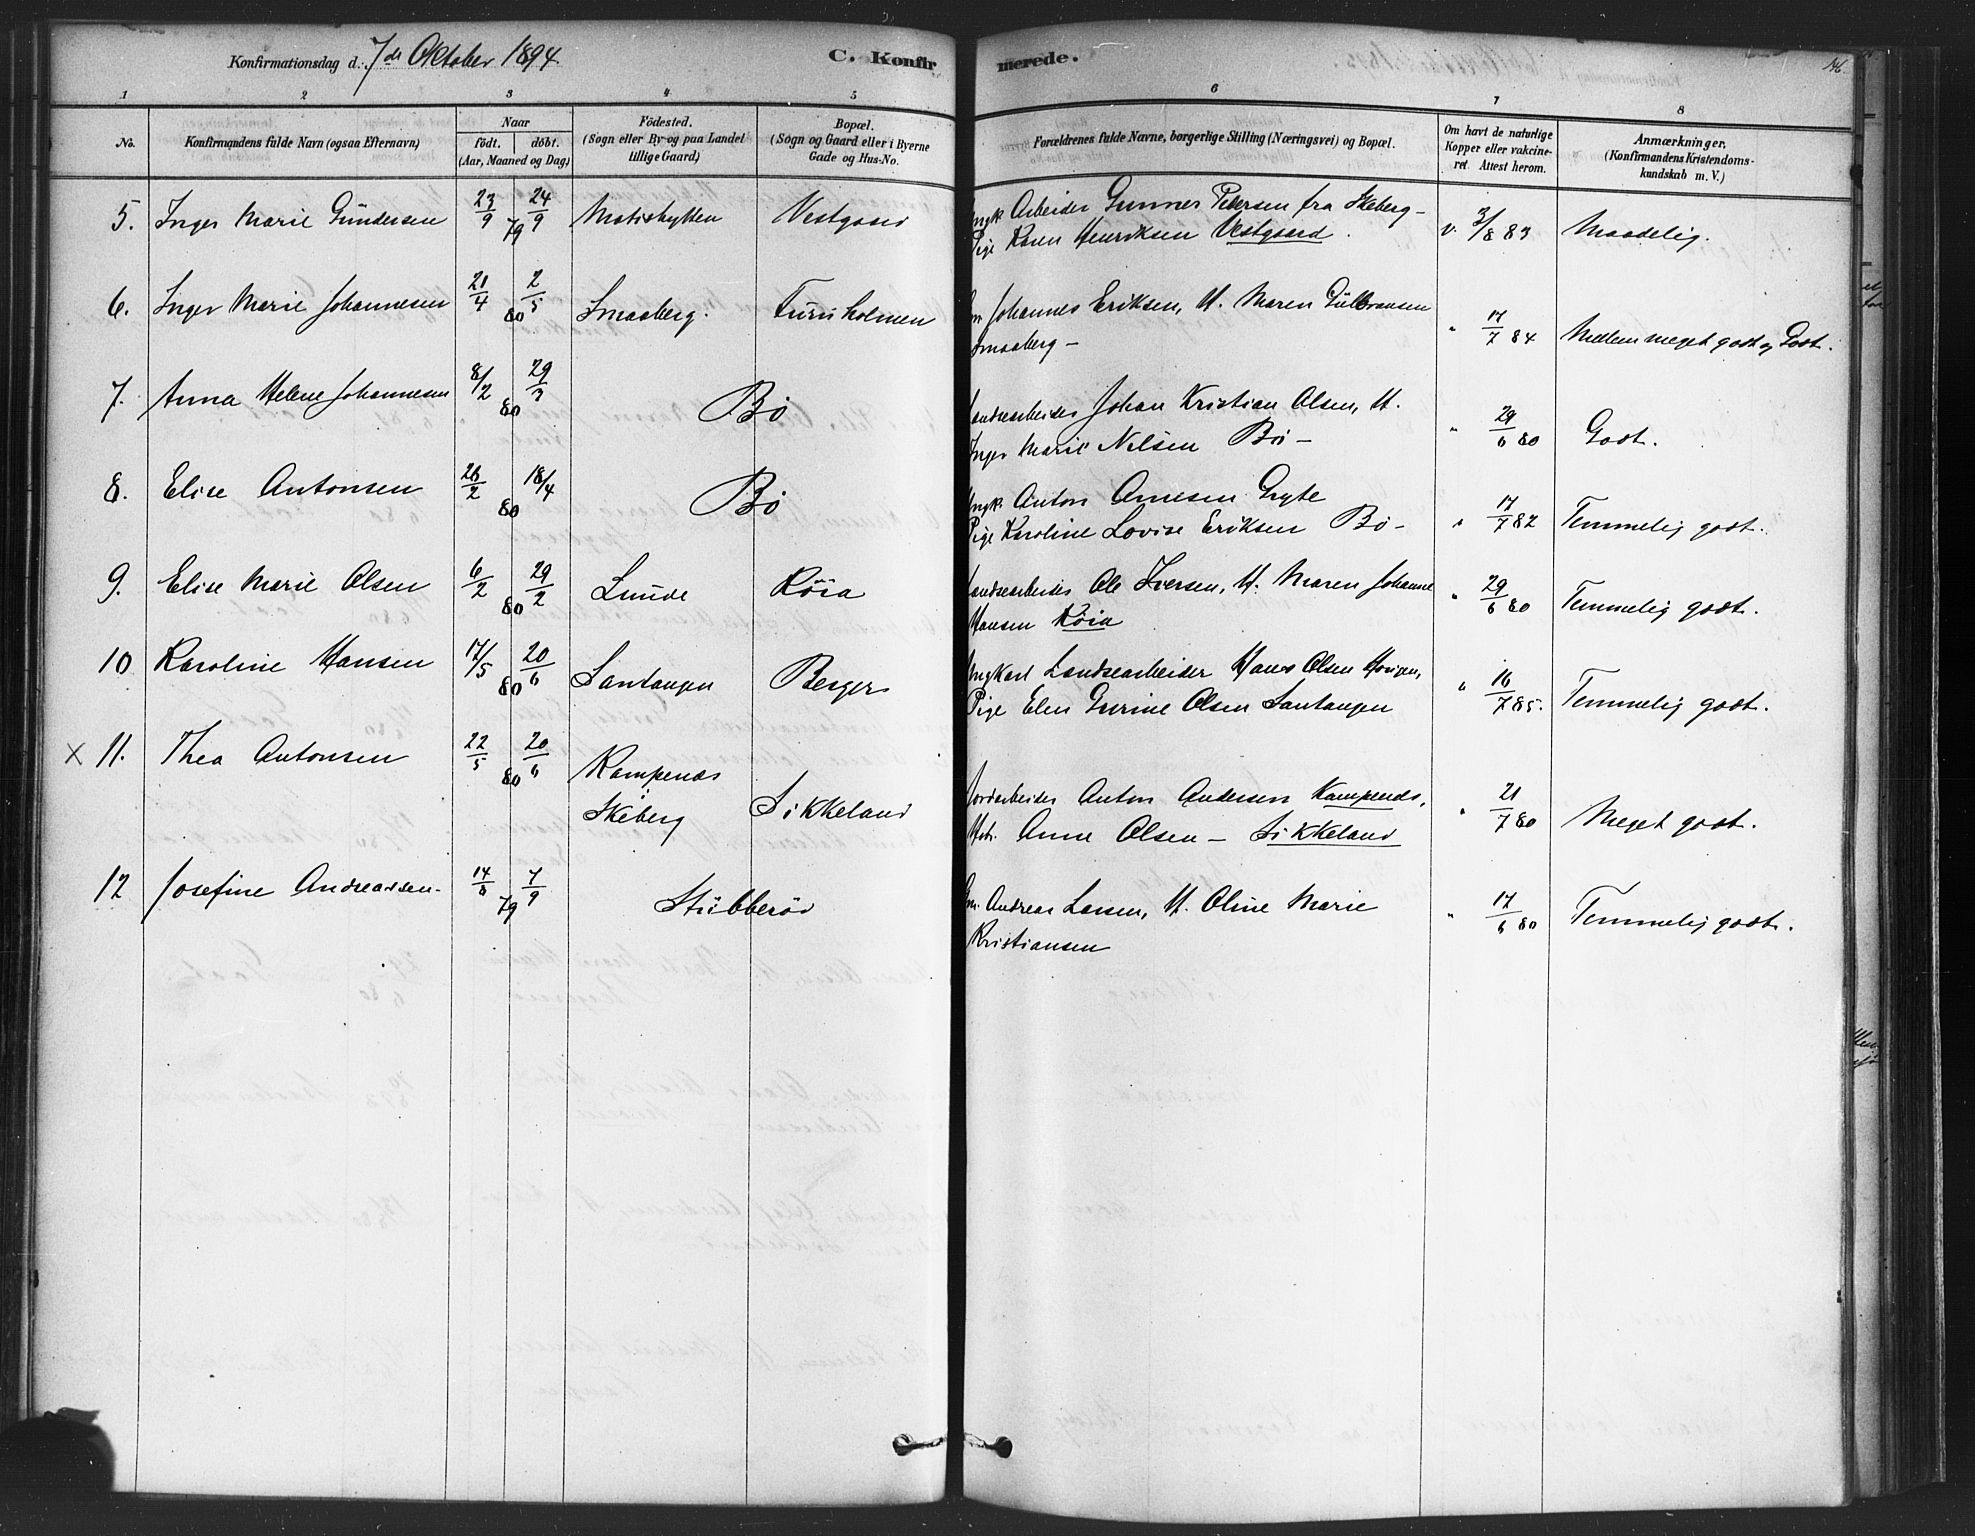 Konfirmationsdag d. 7de Oktober 1894. C. Konfirmerede. 146.
1 2 3 4 5 6 7 8
No. Konfirmandens fulde Navn (ogsaa Efternavn) Naar født. døbt. (Aar, Maaned og Dag) Födested. (Sogn eller By- og paa Landet tillige Gaard) Bopæl. (Sogn og Gaard eller i Byerne Gade og Hus-No. Forældrenes fulde Navne, borgerlige Stilling (Næringsvei) og Bopæl. Om havt de naturlige Kopper eller vakcineret. Attest herom. Anmærkninger. (Konfirmandens Kristendomskundskab m. V.)
5. Inger Marie Gundersen 23/9 24/9 79 Vestgaard Ungk. Arbeider Gunner Petersen fra Skeberg –
Pige Karen Henriksen Vestgaard. v. 3/8 83 Maadelig.
6. Inger Marie Johannesen 21/4 2/5 80 Smaaberg. Furuholmen Gm. Johannes Eriksen, H. Maren Gulbransen
Smaaberg – " 17/7 84 Mellem meget godt og Godt.
7. Anna Helene Johannesen 8/2 29/3 80 Bø Landearbeider Johan Kristian Olsen, H.
Inger Marie Nilsen Bø – " 29/6 80 Godt.
8. Elise Antonsen 26/2 18/4 80 Bø Ungk. Anton Arnesen Gryte
Pige Karoline Lovise Eriksen Bø – " 17/7 82 Temmelig godt.
9. Elise Marie Olsen 6/2 29/2 80 Lunde Röia Landearbeider Ole Iversen, H. Maren Johanne
Hansen Röia " 29/6 80 Temmelig godt.
10 Karoline Hansen 17/5 20/6 80 Santangen Berger Ungkarl Landearbeider Hans Olsen
Pige Elen Gurine Olsen Santangen " 16/7 85. Temmelig godt.
x 11. Thea Antonsen 22/5 20/6 80 Kampenæs
Skeberg Sikkeland Jordarbeider Anton Andersen Kampenæs,
Hst. Anne Olsen – Sikkeland " 21/7 80 Meget godt.
12 Josefine Andreassen 14/8 7/9 79 Stubberød Gm. Andreas Larsen, H. Oline Marie
Kristiansen " 17/6 80 Temmelig godt.